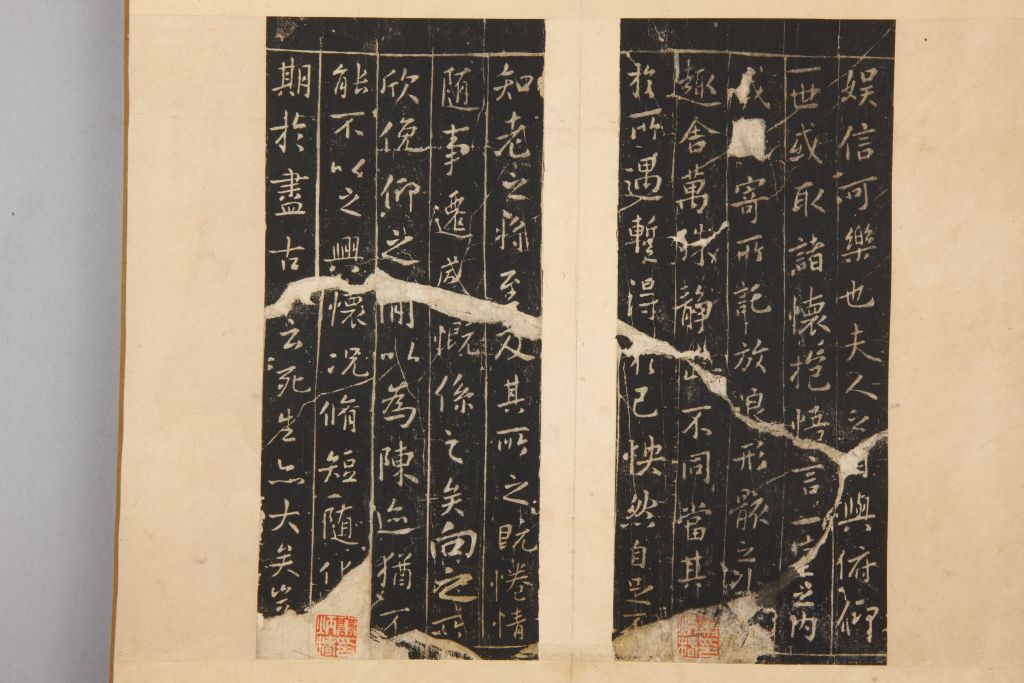 娱信可樂也夫人之相與俯仰
一世或取諸懷抱悟言一室之內
或寄所託放浪形骸之外
趣舍萬殊静躁不同當其
於所遇蹔得於己怏然自足不
知老之將至及其所之既惓情
随事遷感慨係之矣向之所
欣俛仰之閒以為陳迹猶不
能不以之興懷况脩短随化
期於盡古云死生亦大矣豈